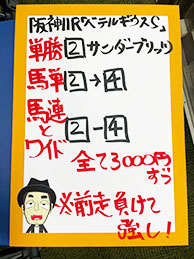 阪神11R「ベテルギウスS」
単勝 2 サンダーブリッツ
馬単 2→4
馬連とワイド 2－4
全て3000円ずつ
※前走負けて強し！